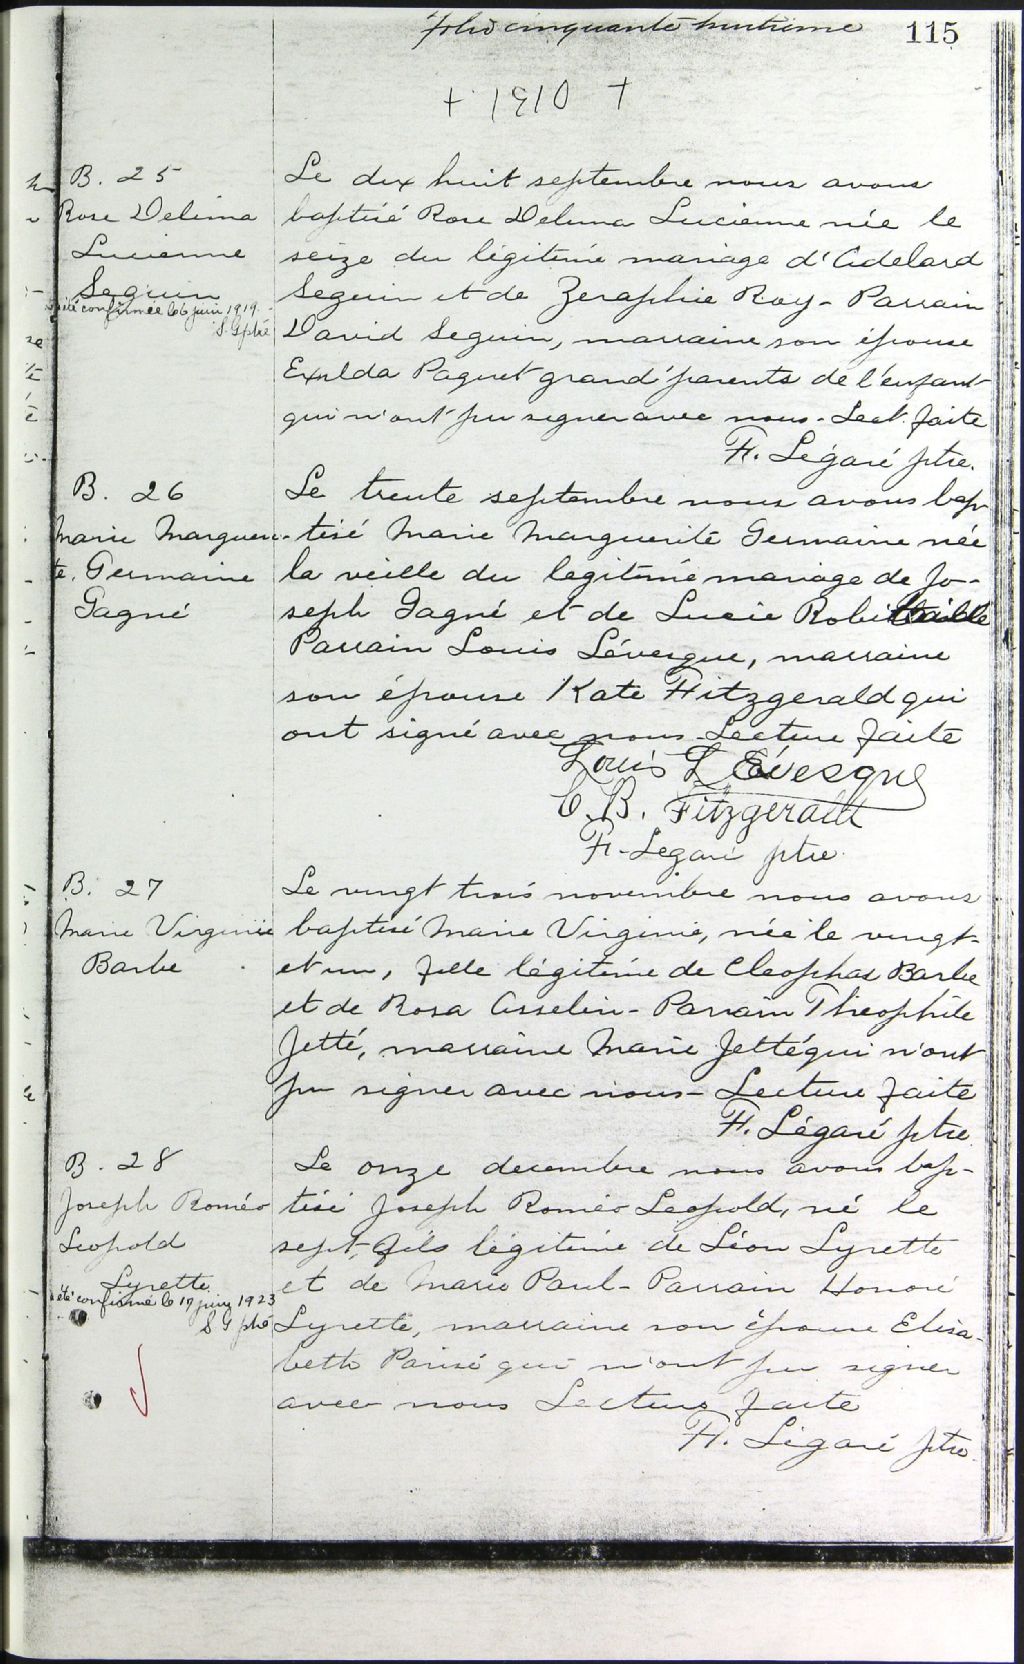 folio cinquante huitieme
115
+ 1910 +
B. 25
Rose Delima
Lucienne
Seguin
été confirmée le 6 juin 1919.
S. G ptre
Le dix huit septembre nous avons
baptisé Rose Delima Lucienne née le
seize du légitime mariage d'Adelard
Seguin et de Zeraphie Roy - Parrain
David Seguin, marraine son épouse
Exilda Paquet grand'parents de l'enfant
qui n'ont pu signer avec nous - Lect. faite
F. Légaré ptre.
B. 26
Marie Margueri-
te. Germaine
Gagné
Le trente septembre nous avons bap-
tisé Marie Marguerite Germaine née
la veille du legitime mariage de Jo-
seph Gagné et de Lucie Robitaille
Parrain Louis Lévesque, marraine
son épouse Kate Fitzgerald qui
ont signé avec nous - Lecture faite
Louis LÉvesque
C. B. Fitzgerald
F. Legaré ptre.
B. 27
Marie Virginie
Barbe
Le vingt trois novembre nous avons
baptisé Marie Virginie, née le vingt-
et un, fille légitime de Cleophas Barbe
et de Rosa Asselin - Parrain Theophile
Jetté, marraine Marie Jetté qui n'ont
pu signer avec nous - Lecture faite
F. Légaré ptre
B. 28
Joseph Roméo
Leopold
Lyrette
été confirmé le 17 juin 1923
S G ptre
Le onze decembre nous avons bap-
tisé Joseph Roméo Leopold, né le
sept, fils légitime de Léon Lyrette
et de Marie Paul - Parrain Honoré
Lyrette, marraine son épouse Elisa-
beth Parisé qui n'ont pu signer
avec nous Lecture faite
F. Légaré ptre